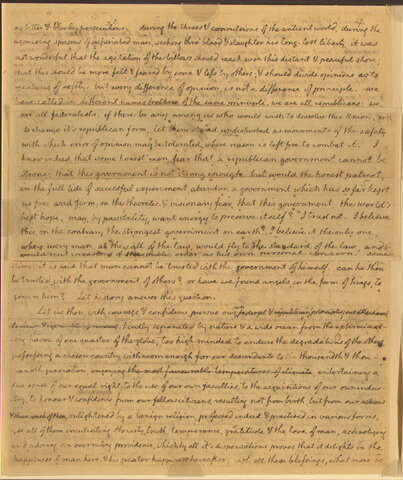 as bitter & bloody persecutions. during the throes & convulsions of the antient world, during the
agonising spasms of infuriated man, seeking thro' blood & slaughter his long lost liberty, it was
not wonderful that the agitation of the billows should reach even this distant & peaceful shore;
that this should be more felt & feared by some & less by others; & should divide opinions as to
measures of safety. but every difference of opinion, is not a difference of principle. we
have called by different names brethren of the same principle. we are all republicans: we
are all federalists. if there be any among us who would wish to dissolve this Union, or
to change it's republican form, let them stand undisturbed as monuments of the safety
with which error of opinion may be tolerated, where reason is left free to combat it. I
know indeed that some honest men fear that a republican government cannot be
strong; that this government is not strong enough. but would the honest patriot,
in the full tide of successful experiment abandon a government which has so far kept
us free and firm, on the theoretic & visionary fear, that this government the world's
best hope, may, by possibility, want energy to preserve itself? I trust not. I believe
this, on the contrary, the strongest government on earth. I believe it the only one,
where every man, at the call of the law, would fly to the standard of the law, and
would meet invasions of the public order as his own personal concern. some
times it is said that man cannot be trusted with the government of himself. can he then
be trusted with the government of others? or have we found angels in the form of kings, to
govern him? Let history answer this question.
Let us then with courage & confidence pursue our federal & republican principles, our attachment
to union & representative government. kindly separated by nature & a wide ocean from the exterminat
ing havoc of one quarter of the globe; too high minded to endure the degradations of the others,
possessing a chosen country, with room enough for our descendants to the thousandth & thou-
sandth generation, enjoying the most favourable temperatures of climate, entertaining a
due sense of our equal right, to the use of our own faculties, to the acquisitions of our own indus-
try, to honour & confidence from our fellow citizens, resulting not from birth but from our actions
& their sense of them, enlightened by a benign religion, professed indeed & practised in various forms,
yet all of them inculcating honesty, truth, temperance, gratitude & the love of man, acknoleging
and adoring an overruling providence, which by all it's dispensations proves that it delights in the
happiness of man here, & his greater happiness hereafter; with all these blessings, what more is